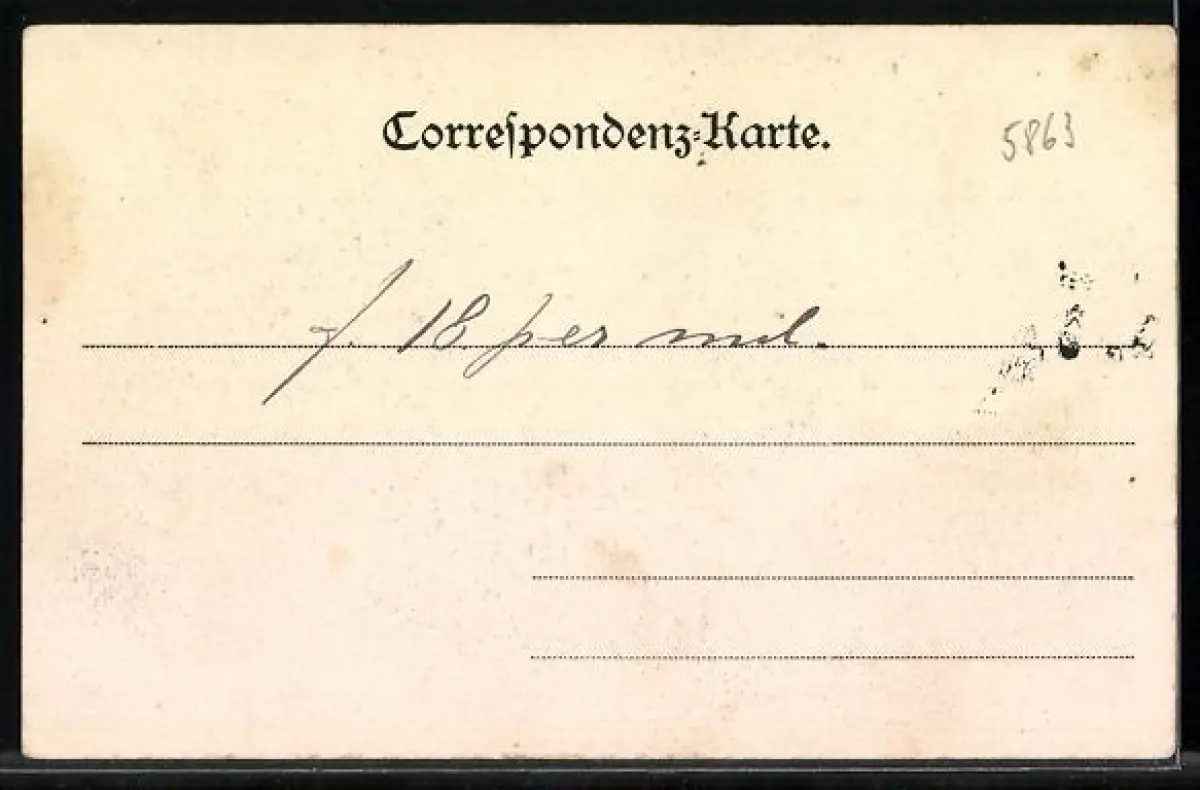 Correſpondenz-Karte.
5863
f. 18. per mil.